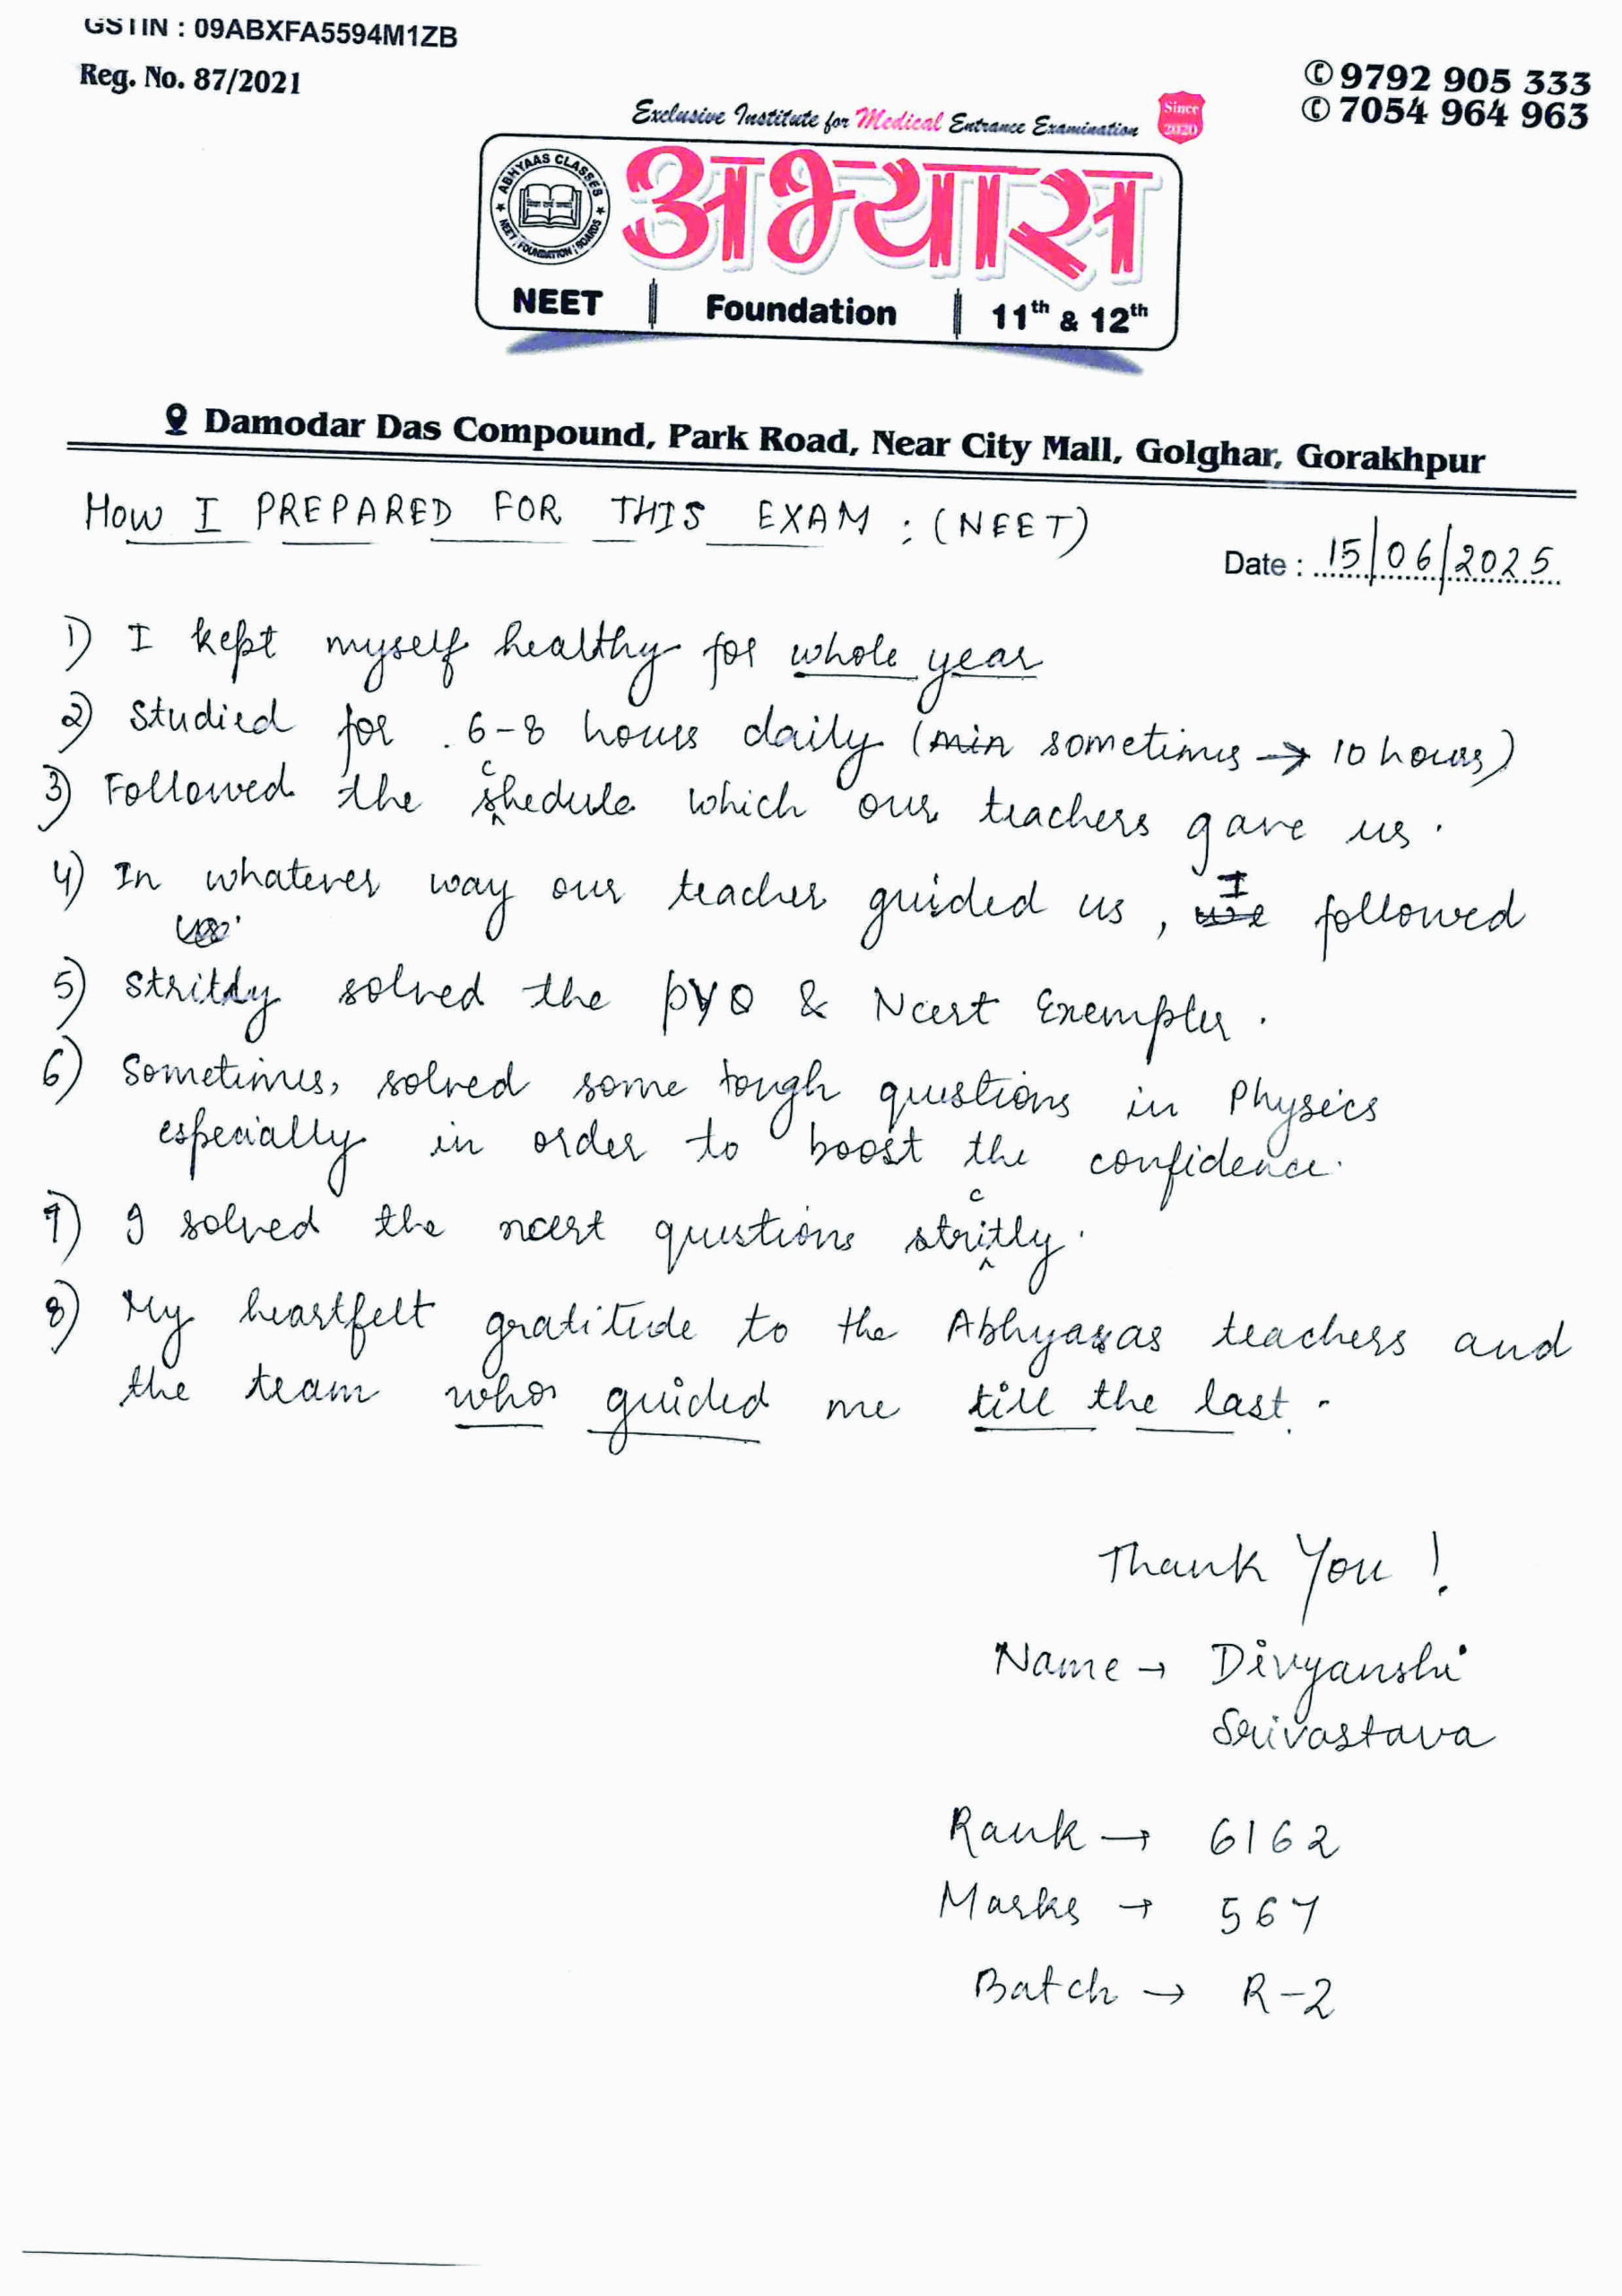 GSTIN : 09ABXFA5594M1ZB
Reg. No. 87/2021
9792 905 333
7054 964 963
Exclusive Institute for Medical Entrance Examination
Since 2020
ABHYAAS CLASSES
NEET | FOUNDATION | BOARDS
अभ्यास
NEET | Foundation | 11th & 12th
Damodar Das Compound, Park Road, Near City Mall, Golghar, Gorakhpur
HOW I PREPARED FOR THIS EXAM : (NEET)
Date : 15/06/2025
1) I kept myself healthy for whole year
2) Studied for 6-8 hours daily (min sometimes → 10 hours)
3) Followed the schedule which our teachers gave us.
4) In whatever way our teacher guided us, I followed
5) Strictly solved the PYQ & Ncert Exempler.
6) Sometimes, solved some tough questions in Physics
especially in order to boost the confidence.
7) I solved the ncert questions strictly.
8) My heartfelt gratitude to the Abhyaas teachers and
the team who guided me till the last.
Thank You !
Name → Divyanshi
Srivastava
Rank → 6162
Marks → 567
Batch → R-2